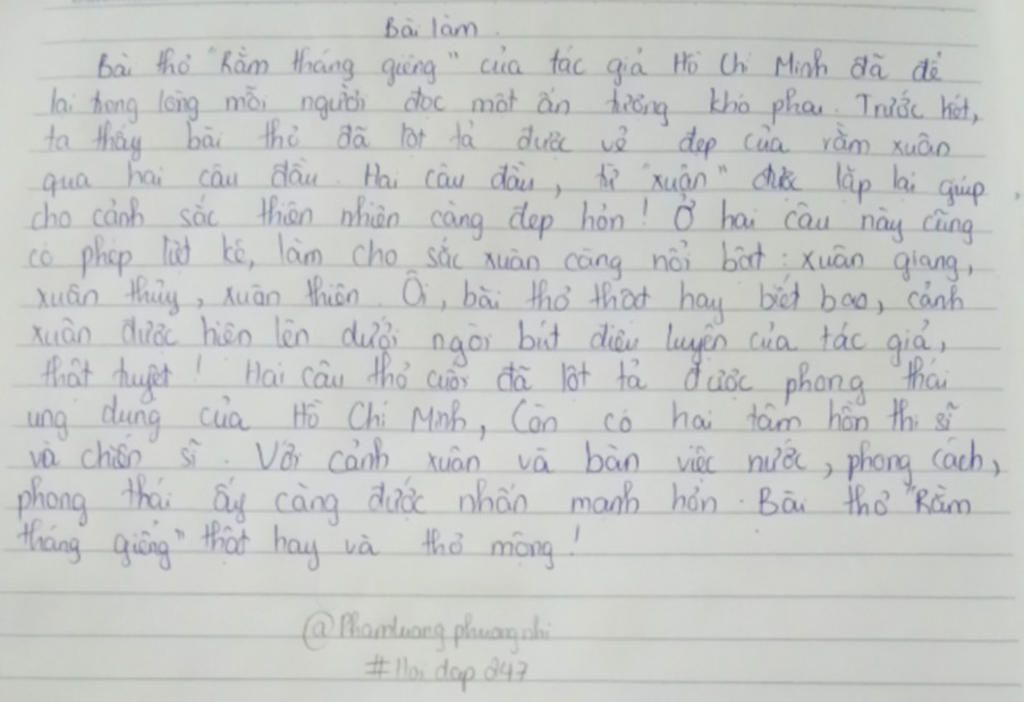 Bài làm.
Bài thơ "Rằm tháng giêng" của tác giả Hồ Chí Minh đã để
lại trong lòng mỗi người đọc một ấn tượng khó phai. Trước hết,
ta thấy bài thơ đã lột tả được vẻ đẹp của rằm xuân
qua hai câu đầu. Hai câu đầu, từ "xuân" được lặp lại giúp
cho cảnh sắc thiên nhiên càng đẹp hơn! Ở hai câu này cũng
có phép liệt kê, làm cho sắc xuân càng nổi bật: xuân giang,
xuân thủy, xuân thiên. Ôi, bài thơ thật hay biết bao, cảnh
xuân được hiện lên dưới ngòi bút điêu luyện của tác giả,
thật tuyệt! Hai câu thơ cuối đã lột tả được phong thái
ung dung của Hồ Chí Minh, Còn có hai tâm hồn thi sĩ
và chiến sĩ. Với cảnh xuân và bàn việc nước, phong cách,
phong thái ấy càng được nhấn mạnh hơn. Bài thơ "Rằm
tháng giêng" thật hay và thơ mộng!
@Phamluongphuongnhi
#Hoidap247